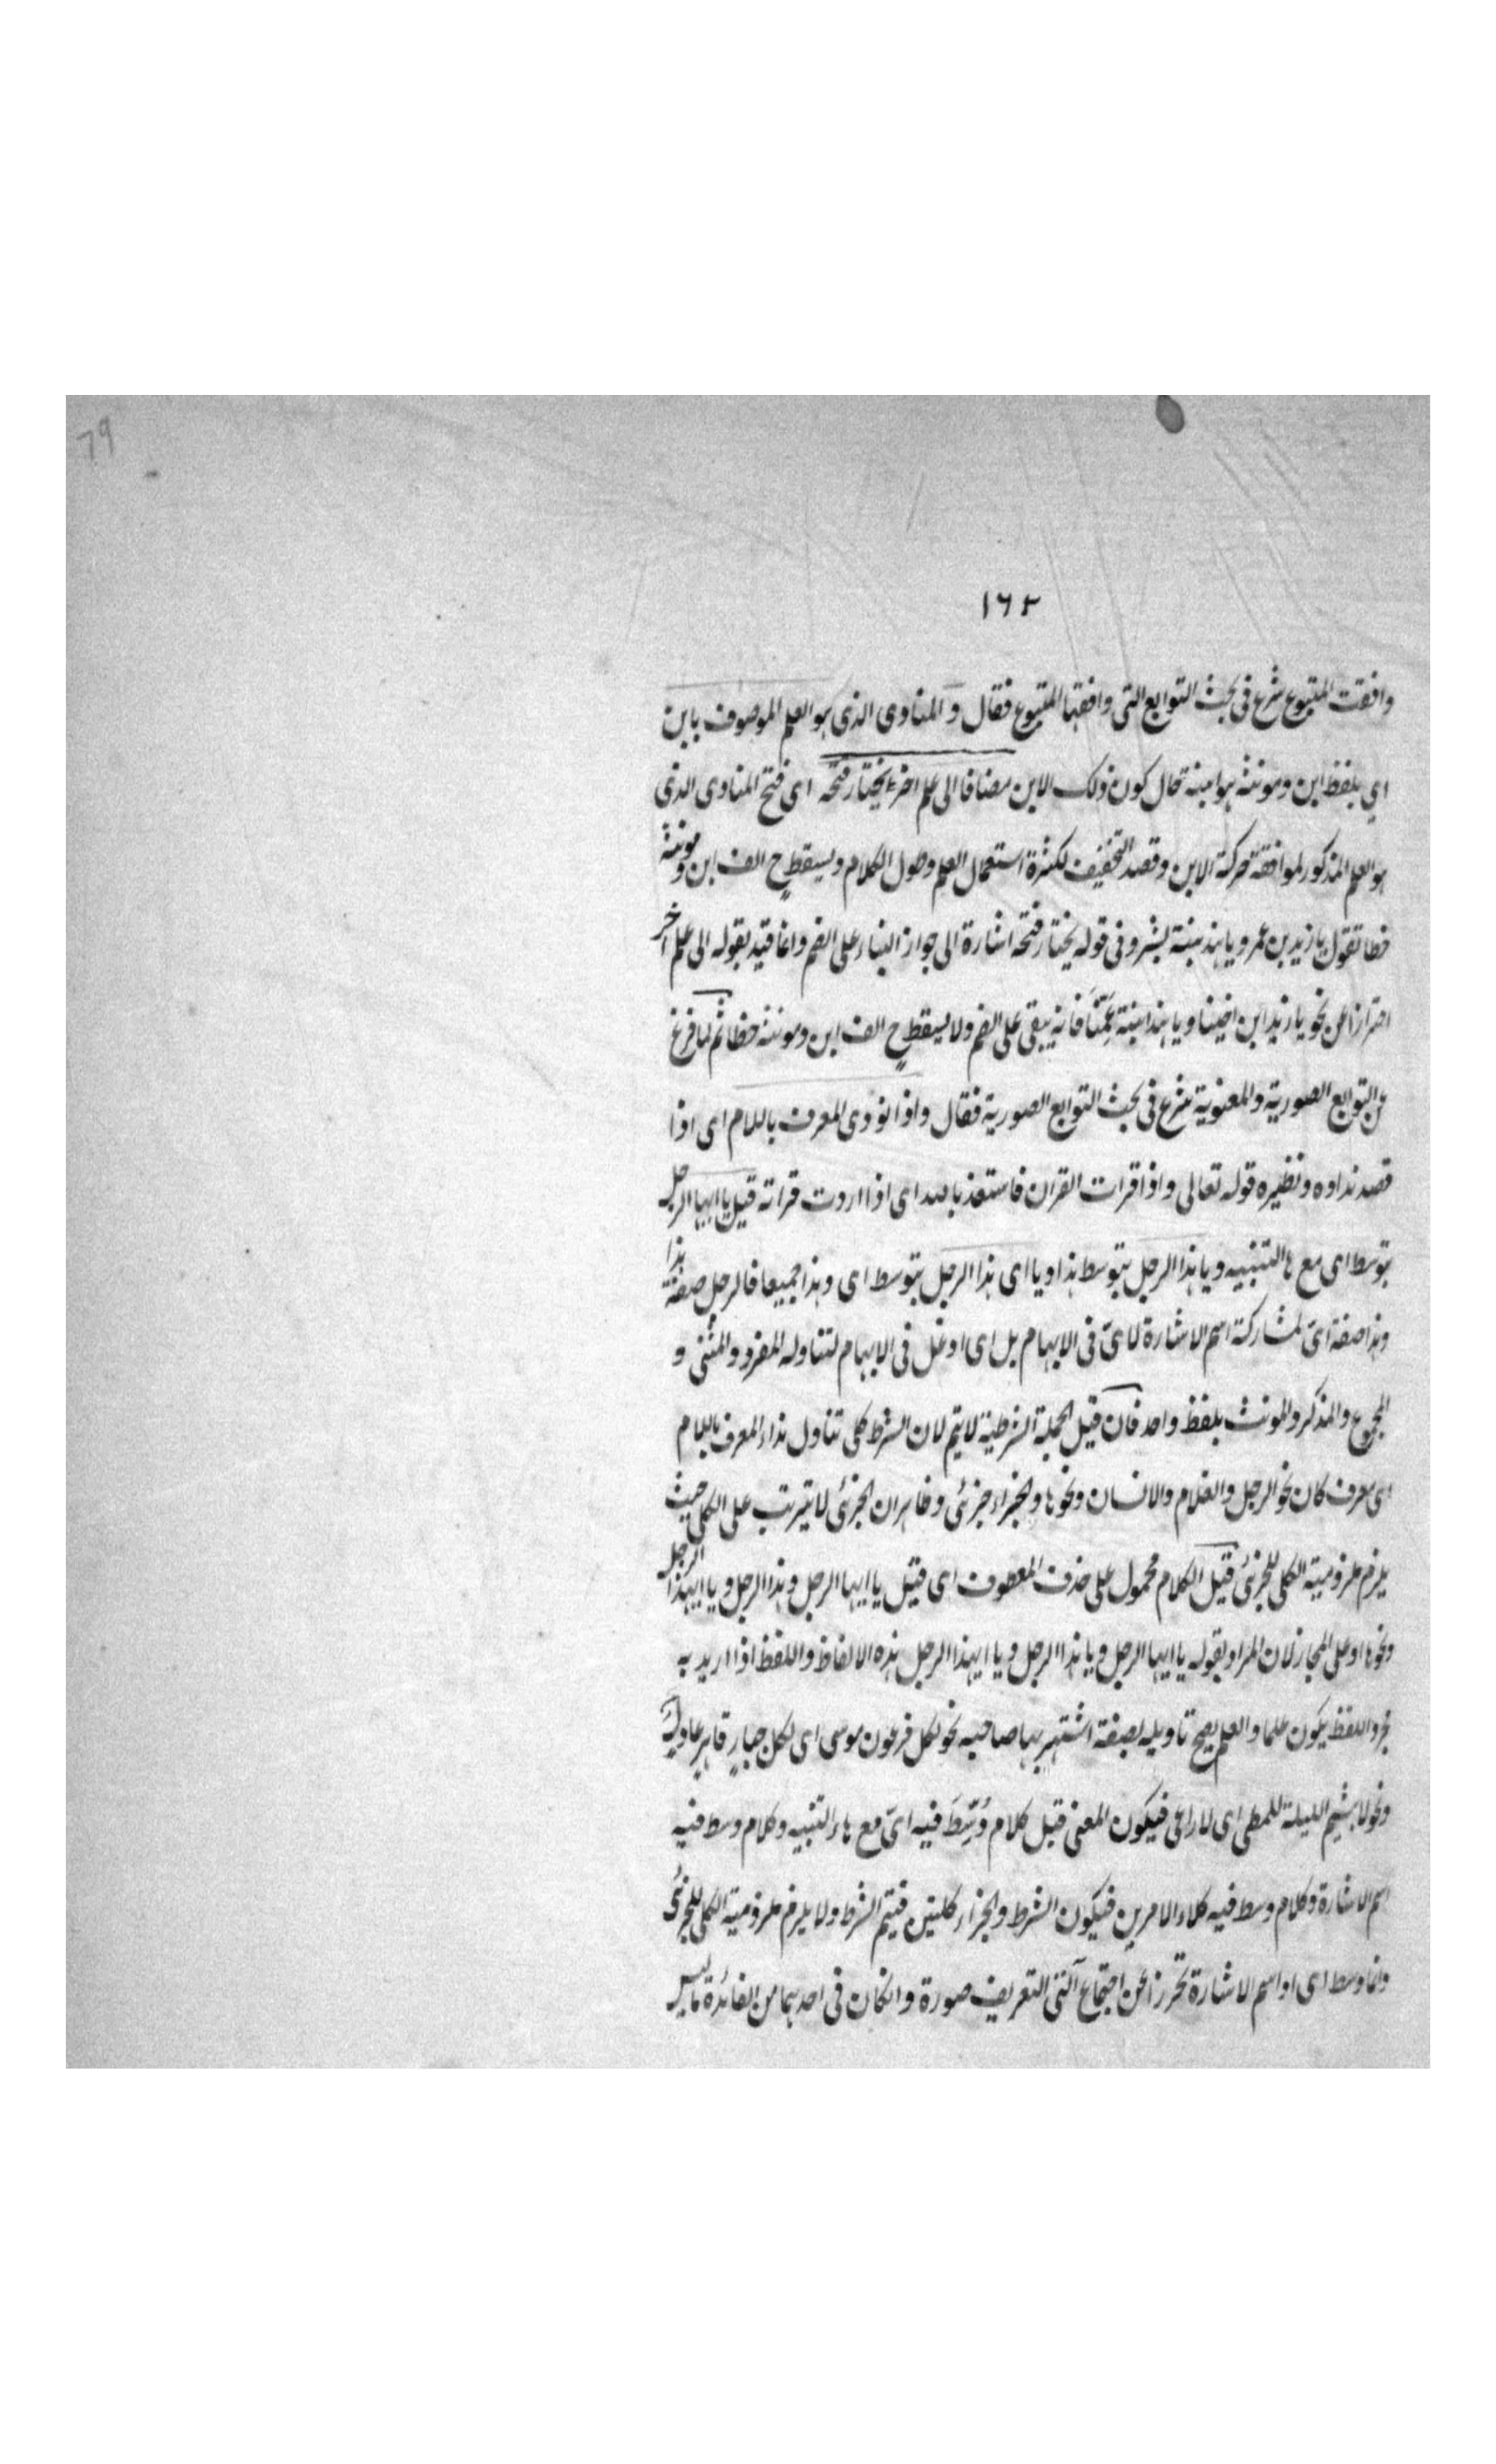 79
١٦٢
وافقت المتبوع شرع فى بحث التوابع التى وافقها المتبوع فقال و المنادى الذى هو العلم الموصوف بابن
اي بلفظ ابن ومونثه هو ابنة حال كون ذلك الابن مضافا الى علم اخر يختار فتحه اى فتح المنادى الذى
هو العلم المذكور لموافقة حركة الابن وقصد التخفيف لكثرة استعمال العلم وطول الكلام ويسقط ح الف ابن ومونثه
خطا تقول يا زيد بن عمرو يا هند بنة بشر وفى قوله يختار فتحه اشارة الى جواز البناء على الضم وانما قيد بقوله الى علم اخر
احترازا عن نحو يا زيد ابن اخينا ويا هند ابنة عمّنا فانه يبقى على الضم ولا يسقط ح الف ابن ومونثه خطا ثم لما فرغ
عن التوابع الصورية والمعنوية شرع فى بحث التوابع الصورية فقال واذا نودى المعرف باللام اى اذا
قصد نداوه ونظيره قوله تعالى واذا قرات القران فاستعذ بالله اى اذا اردت قراته قيل يا ايها الرجل
بتوسط اى مع ها التنبيه ويا هذا الرجل بتوسط هذا ويا اى هذا الرجل بتوسط اى وهذا جميعا فالرجل صفة هذا
وهذا صفة اىّ لمشاركة اسم الاشارة لاىّ فى الابهام بل اى اوغل فى الابهام لتناوله المفرد والمثنى و
المجموع والمذكر والمونث بلفظ واحد فان قيل الجملة الشرطية لا يتم لان الشرط كلى تناول نداء المعرف باللام
اى معرف كان نحو الرجل والغلام والانسان ونحوها والجزاء جزئى وظاهر ان الجزئى لا يترتب على الكلى حيث
يلزم ملزومية الكلى للجزئى قيل الكلام محمول على حذف المعطوف اى قيل يا ايها الرجل وهذا الرجل ويا ايهذا الرجل
ونحوها او على المجاز لان المراد بقوله يا ايها الرجل ويا هذا الرجل ويا ايهذا الرجل هذه الالفاظ واللفظ اذا اريد به
مجرد اللفظ يكون علما والعلم يصح تاويله بصفة اشتهر بها صاحبه نحو لكل فرعون موسى اى لكل جبارٍ قاهر عادل
ونحو لا هيثم الليلة للمطى اى لا راعى فيكون المعنى قيل كلام وُسِّطَ فيه اىّ مع هاء التنبيه وكلام وسط فيه
اسم الاشارة وكلام وسط فيه كلاء الامرين فيكون الشرط والجزاء كليتين فيتم الشرط ولا يلزم ملزومية الكلى للجزئى
وانما وسط اى او اسم الاشارة تحرزا عن اجتماع آلتى التعريف صورة وانكان فى احدهما من الفائدة ما ليس